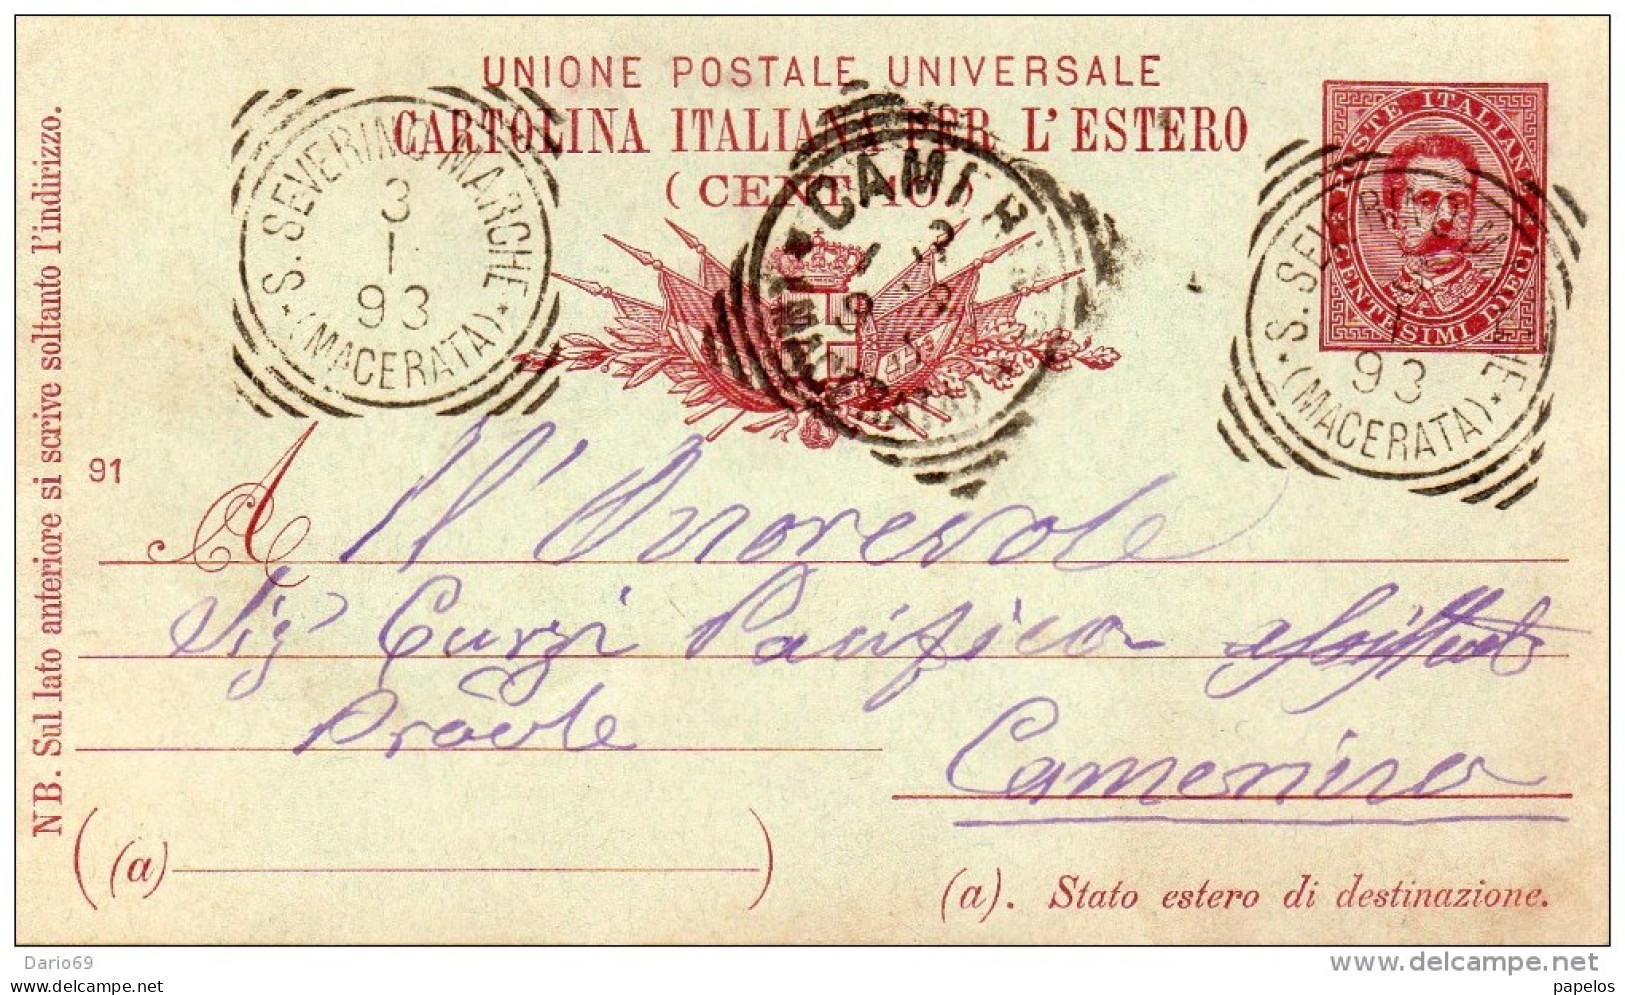 UNIONE POSTALE UNIVERSALE
CARTOLINA ITALIANA PER L'ESTERO
(CENT. 10)
POSTE ITALIANE
CENTESIMI DIECI
S. SEVERINO MARCHE
3
1
93
(MACERATA)
CAMERI
S. SEVERINO
1
93
(MACERATA)
NB. Sul lato anteriore si scrive soltanto l'indirizzo.
91
A ll'Onorevole
Sigr Curzi Pacifico
Camerino
(a)
(a). Stato estero di destinazione.
Dario69
www.delcampe.net
papelos